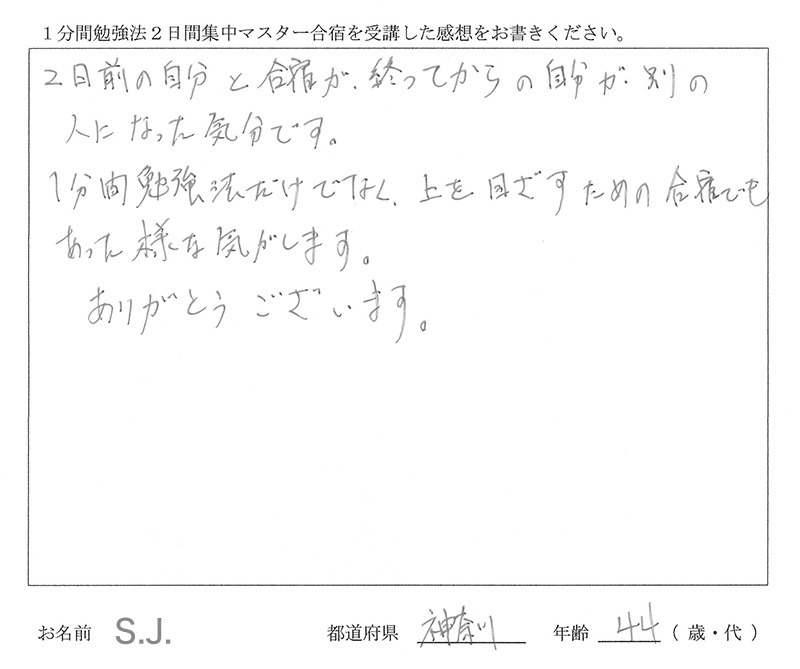 1分間勉強法2日間集中マスター合宿を受講した感想をお書きください。
2日前の自分と合宿が、終ってからの自分が、別の
人になった気分です。
1分間勉強法だけでなく、上を目ざすための合宿でも
あった様な気がします。
ありがとうございます。
お名前 S.J. 都道府県 神奈川 年齢 44 (歳・代)